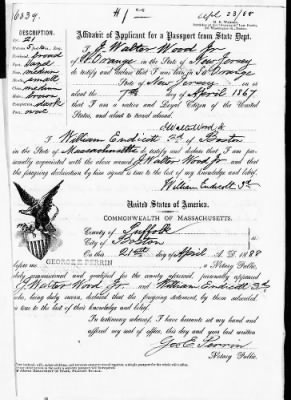 6039.
H 1
Apl. 23/88
DESCRIPTION.
Affidavit of Applicant for a Passport from State Dept.
21
I, J. Walter Wood Jr
of Orange in the State of New Jersey
do testify and declare that I was born in So Orange
State of New Jersey on or
about the 7th day of April 1867
that I am a native and Loyal Citizen of the United
States, and about to travel abroad.
J. Walter Wood, Jr.
I, William Endicott 3d of Boston
in the State of Massachusetts do testify and declare that I am per-
sonally acquainted with the above named J. Walter Wood Jr and that
the foregoing declaration by him signed is true to the best of my knowledge and belief.
William Endicott 3d
United States of America.
COMMONWEALTH OF MASSACHUSETTS.
County of Suffolk
City of Boston
On 21st day of April A. D. 1888
before me GEORGE E. PERRIN a Notary Public,
duly commissioned and qualified for the county aforesaid, personally appeared
J. Walter Wood Jr. and William Endicott 3d
who, being duly sworn, declared that the foregoing statement, by them subscribed
is true to the best of their knowledge and belief.
In testimony whereof, I have hereunto set my hand and
affixed my seal of office, this day and year last written
Geo E. Perrin
Notary Public.